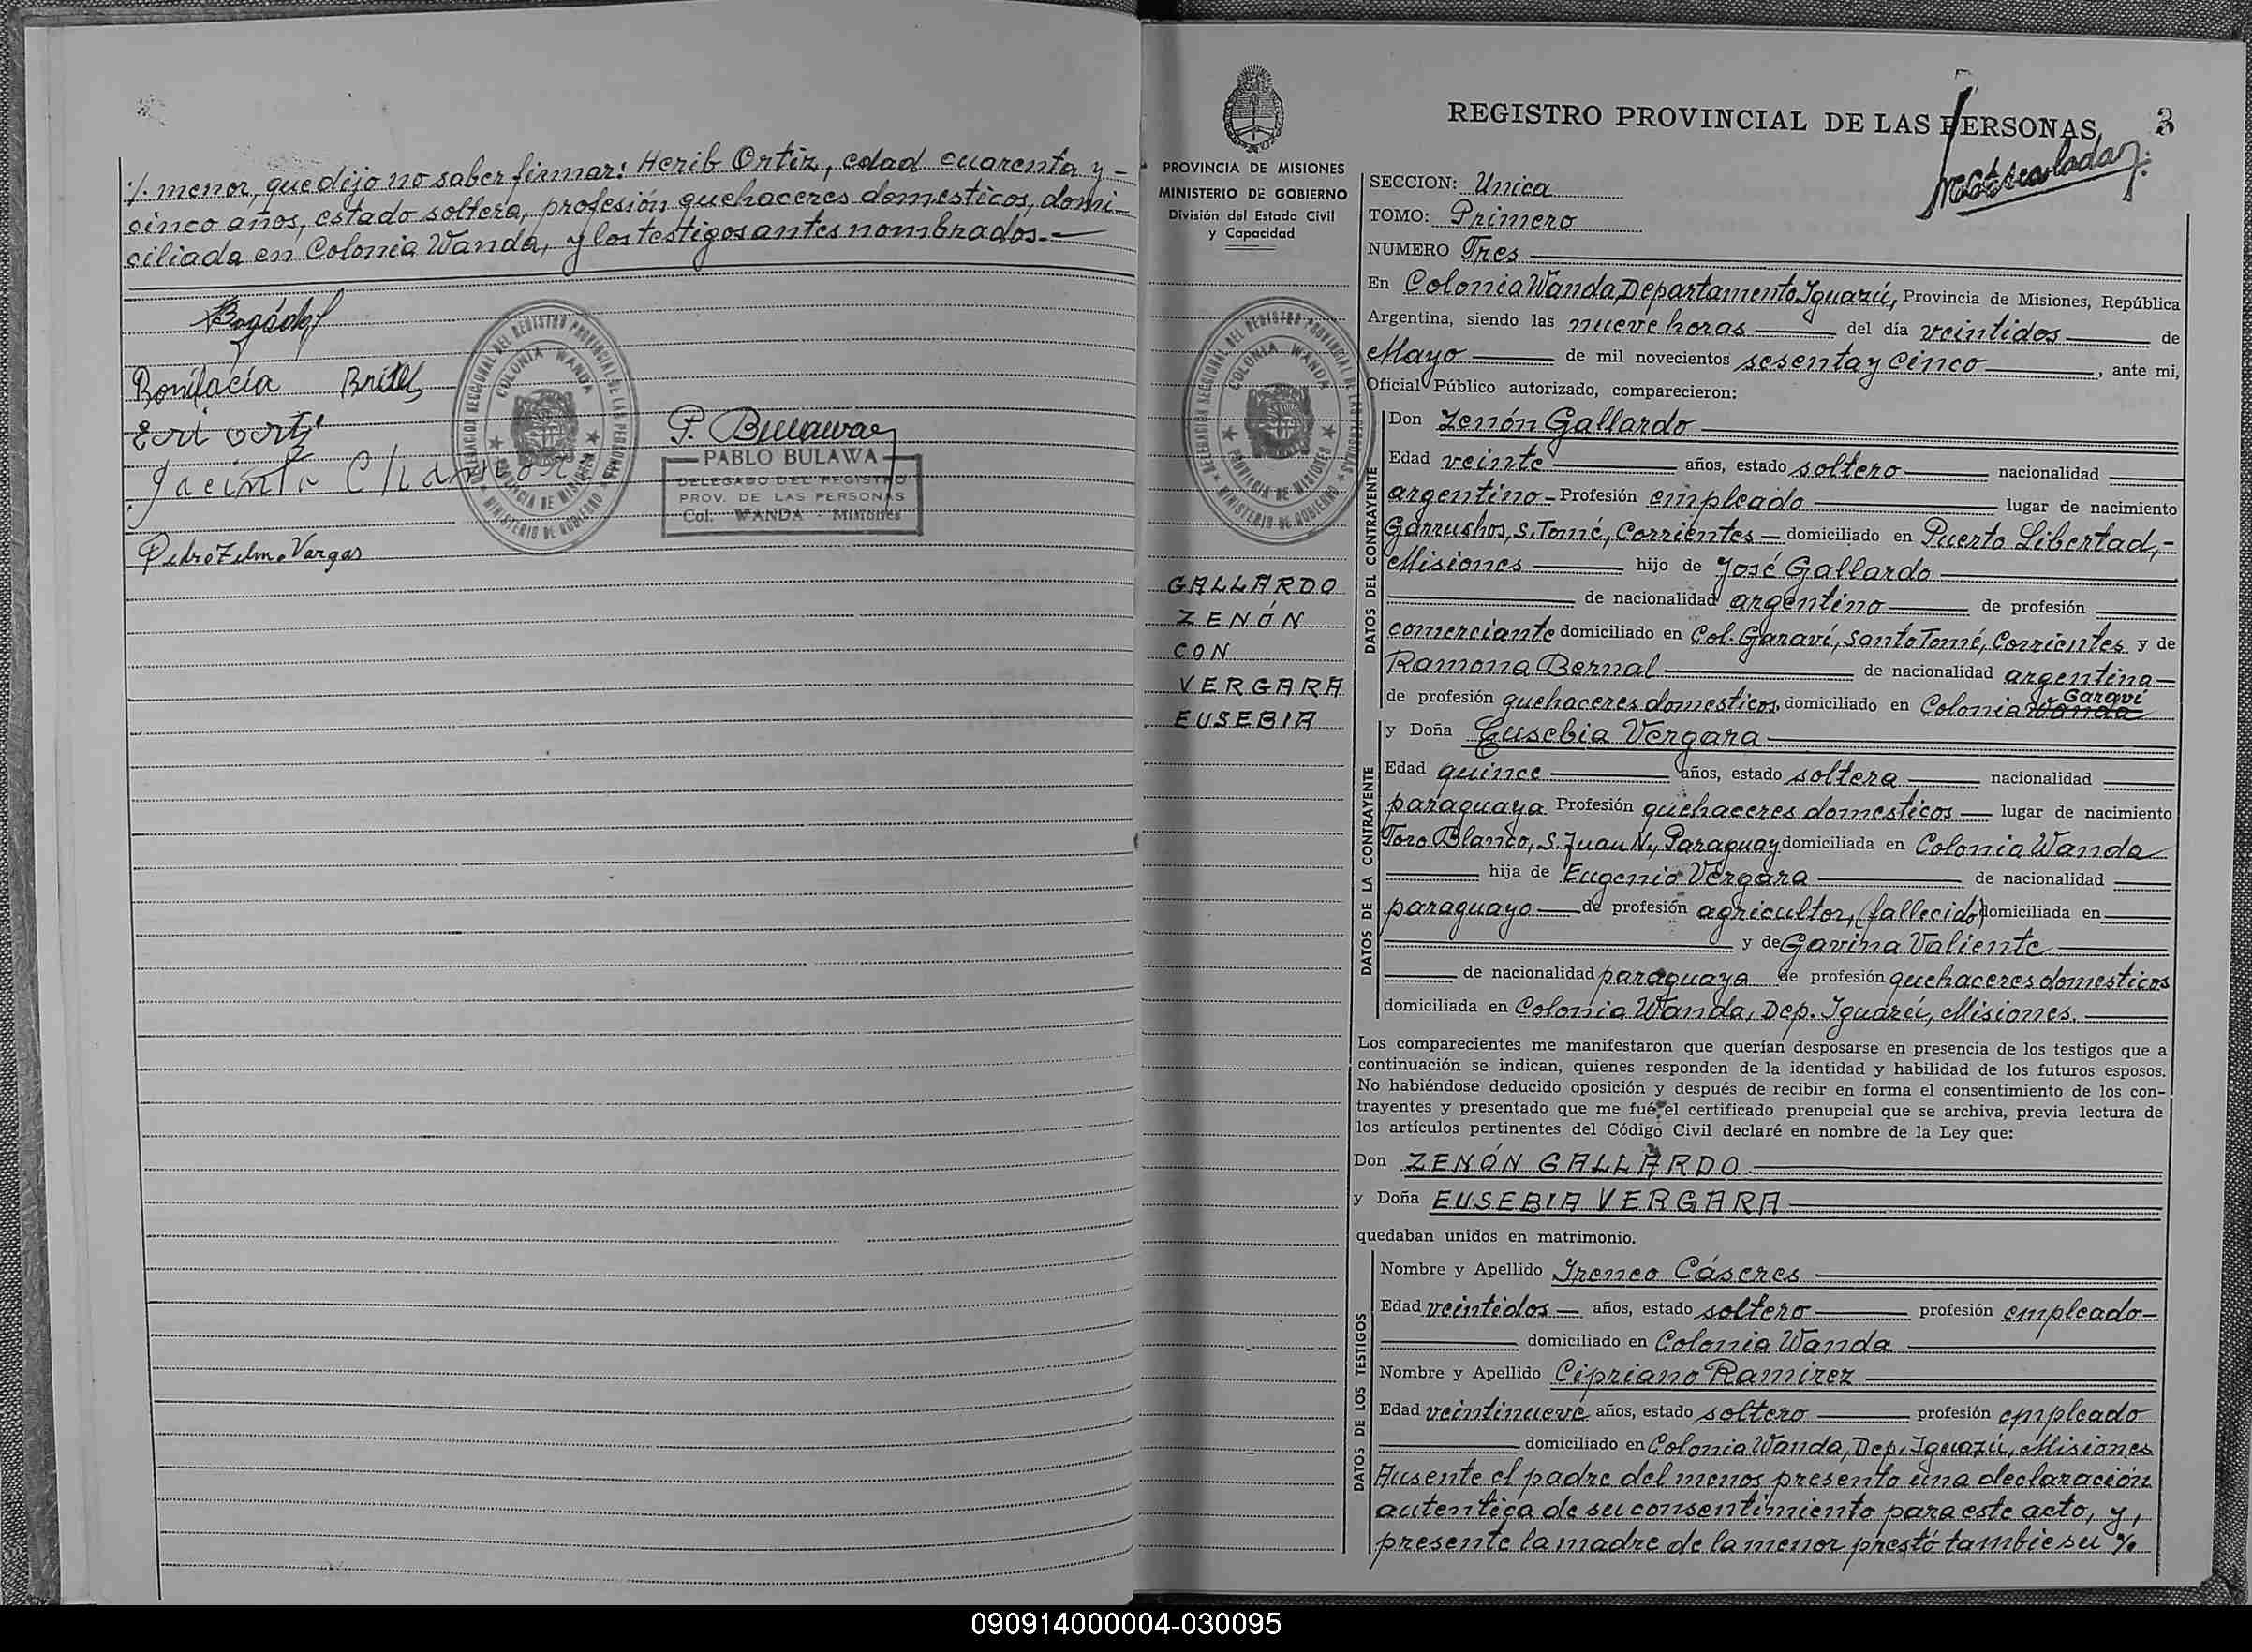 ./. menor, que dijo no saber firmar: Herib Ortiz, edad cuarenta y -
cinco años, estado soltera, profesión quehaceres domesticos, domi-
ciliada en Colonia Wanda, y los testigos antes nombrados.-
Bonifacia Britez
Jacinto
Pedro Zelmo Vargas
P. Bulawa
PABLO BULAWA
DELEGADO DEL REGISTRO
PROV. DE LAS PERSONAS
Col. WANDA - Misiones
DELEGACION SECCIONAL DEL REGISTRO PROVINCIAL DE LAS PERSONAS
COLONIA WANDA
PROVINCIA DE MISIONES
MINISTERIO DE GOBIERNO
PROVINCIA DE MISIONES
MINISTERIO DE GOBIERNO
División del Estado Civil
y Capacidad
DELEGACION SECCIONAL DEL REGISTRO PROVINCIAL DE LAS PERSONAS
COLONIA WANDA
PROVINCIA DE MISIONES
MINISTERIO DE GOBIERNO
GALLARDO
ZENÓN
CON
VERGARA
EUSEBIA
REGISTRO PROVINCIAL DE LAS PERSONAS 3
SECCION: Unica
TOMO: Primero
NUMERO Tres
En Colonia Wanda, Departamento Iguazú, Provincia de Misiones, República
Argentina, siendo las nueve horas del día veintidos de
Mayo de mil novecientos sesenta y cinco, ante mi,
Oficial Público autorizado, comparecieron:
DATOS DEL CONTRAYENTE
Don Zenón Gallardo
Edad veinte años, estado soltero nacionalidad
argentino - Profesión empleado lugar de nacimiento
Garruchos, S. Tomé, Corrientes - domiciliado en Puerto Libertad,-
Misiones hijo de José Gallardo
de nacionalidad argentino de profesión
comerciante domiciliado en Col. Garaví, Santo Tomé, Corrientes y de
Ramona Bernal de nacionalidad argentina
de profesión quehaceres domesticos, domiciliado en Colonia Wanda Garaví
DATOS DE LA CONTRAYENTE
y Doña Eusebia Vergara
Edad quince años, estado soltera nacionalidad
paraguaya Profesión quehaceres domesticos lugar de nacimiento
Toro Blanco, S. Juan N., Paraguay domiciliada en Colonia Wanda
hija de Eugenio Vergara de nacionalidad
paraguayo de profesión agricultor, (fallecido) domiciliada en
y de Gavina Valiente
de nacionalidad paraguaya de profesión quehaceres domesticos
domiciliada en Colonia Wanda, Dep. Iguazú, Misiones.
Los comparecientes me manifestaron que querían desposarse en presencia de los testigos que a
continuación se indican, quienes responden de la identidad y habilidad de los futuros esposos.
No habiéndose deducido oposición y después de recibir en forma el consentimiento de los con-
trayentes y presentado que me fué el certificado prenupcial que se archiva, previa lectura de
los artículos pertinentes del Código Civil declaré en nombre de la Ley que:
Don ZENÓN GALLARDO
y Doña EUSEBIA VERGARA
quedaban unidos en matrimonio.
DATOS DE LOS TESTIGOS
Nombre y Apellido Ireneo Cáseres
Edad veintidos años, estado soltero profesión empleado
domiciliado en Colonia Wanda
Nombre y Apellido Cipriano Ramirez
Edad veintinueve años, estado soltero profesión empleado
domiciliado en Colonia Wanda, Dep. Iguazú, Misiones
Ausente el padre del menor, presento una declaración
autentica de su consentimiento para este acto, y,
presente la madre de la menor prestó tambie su ./.
090914000004-030095